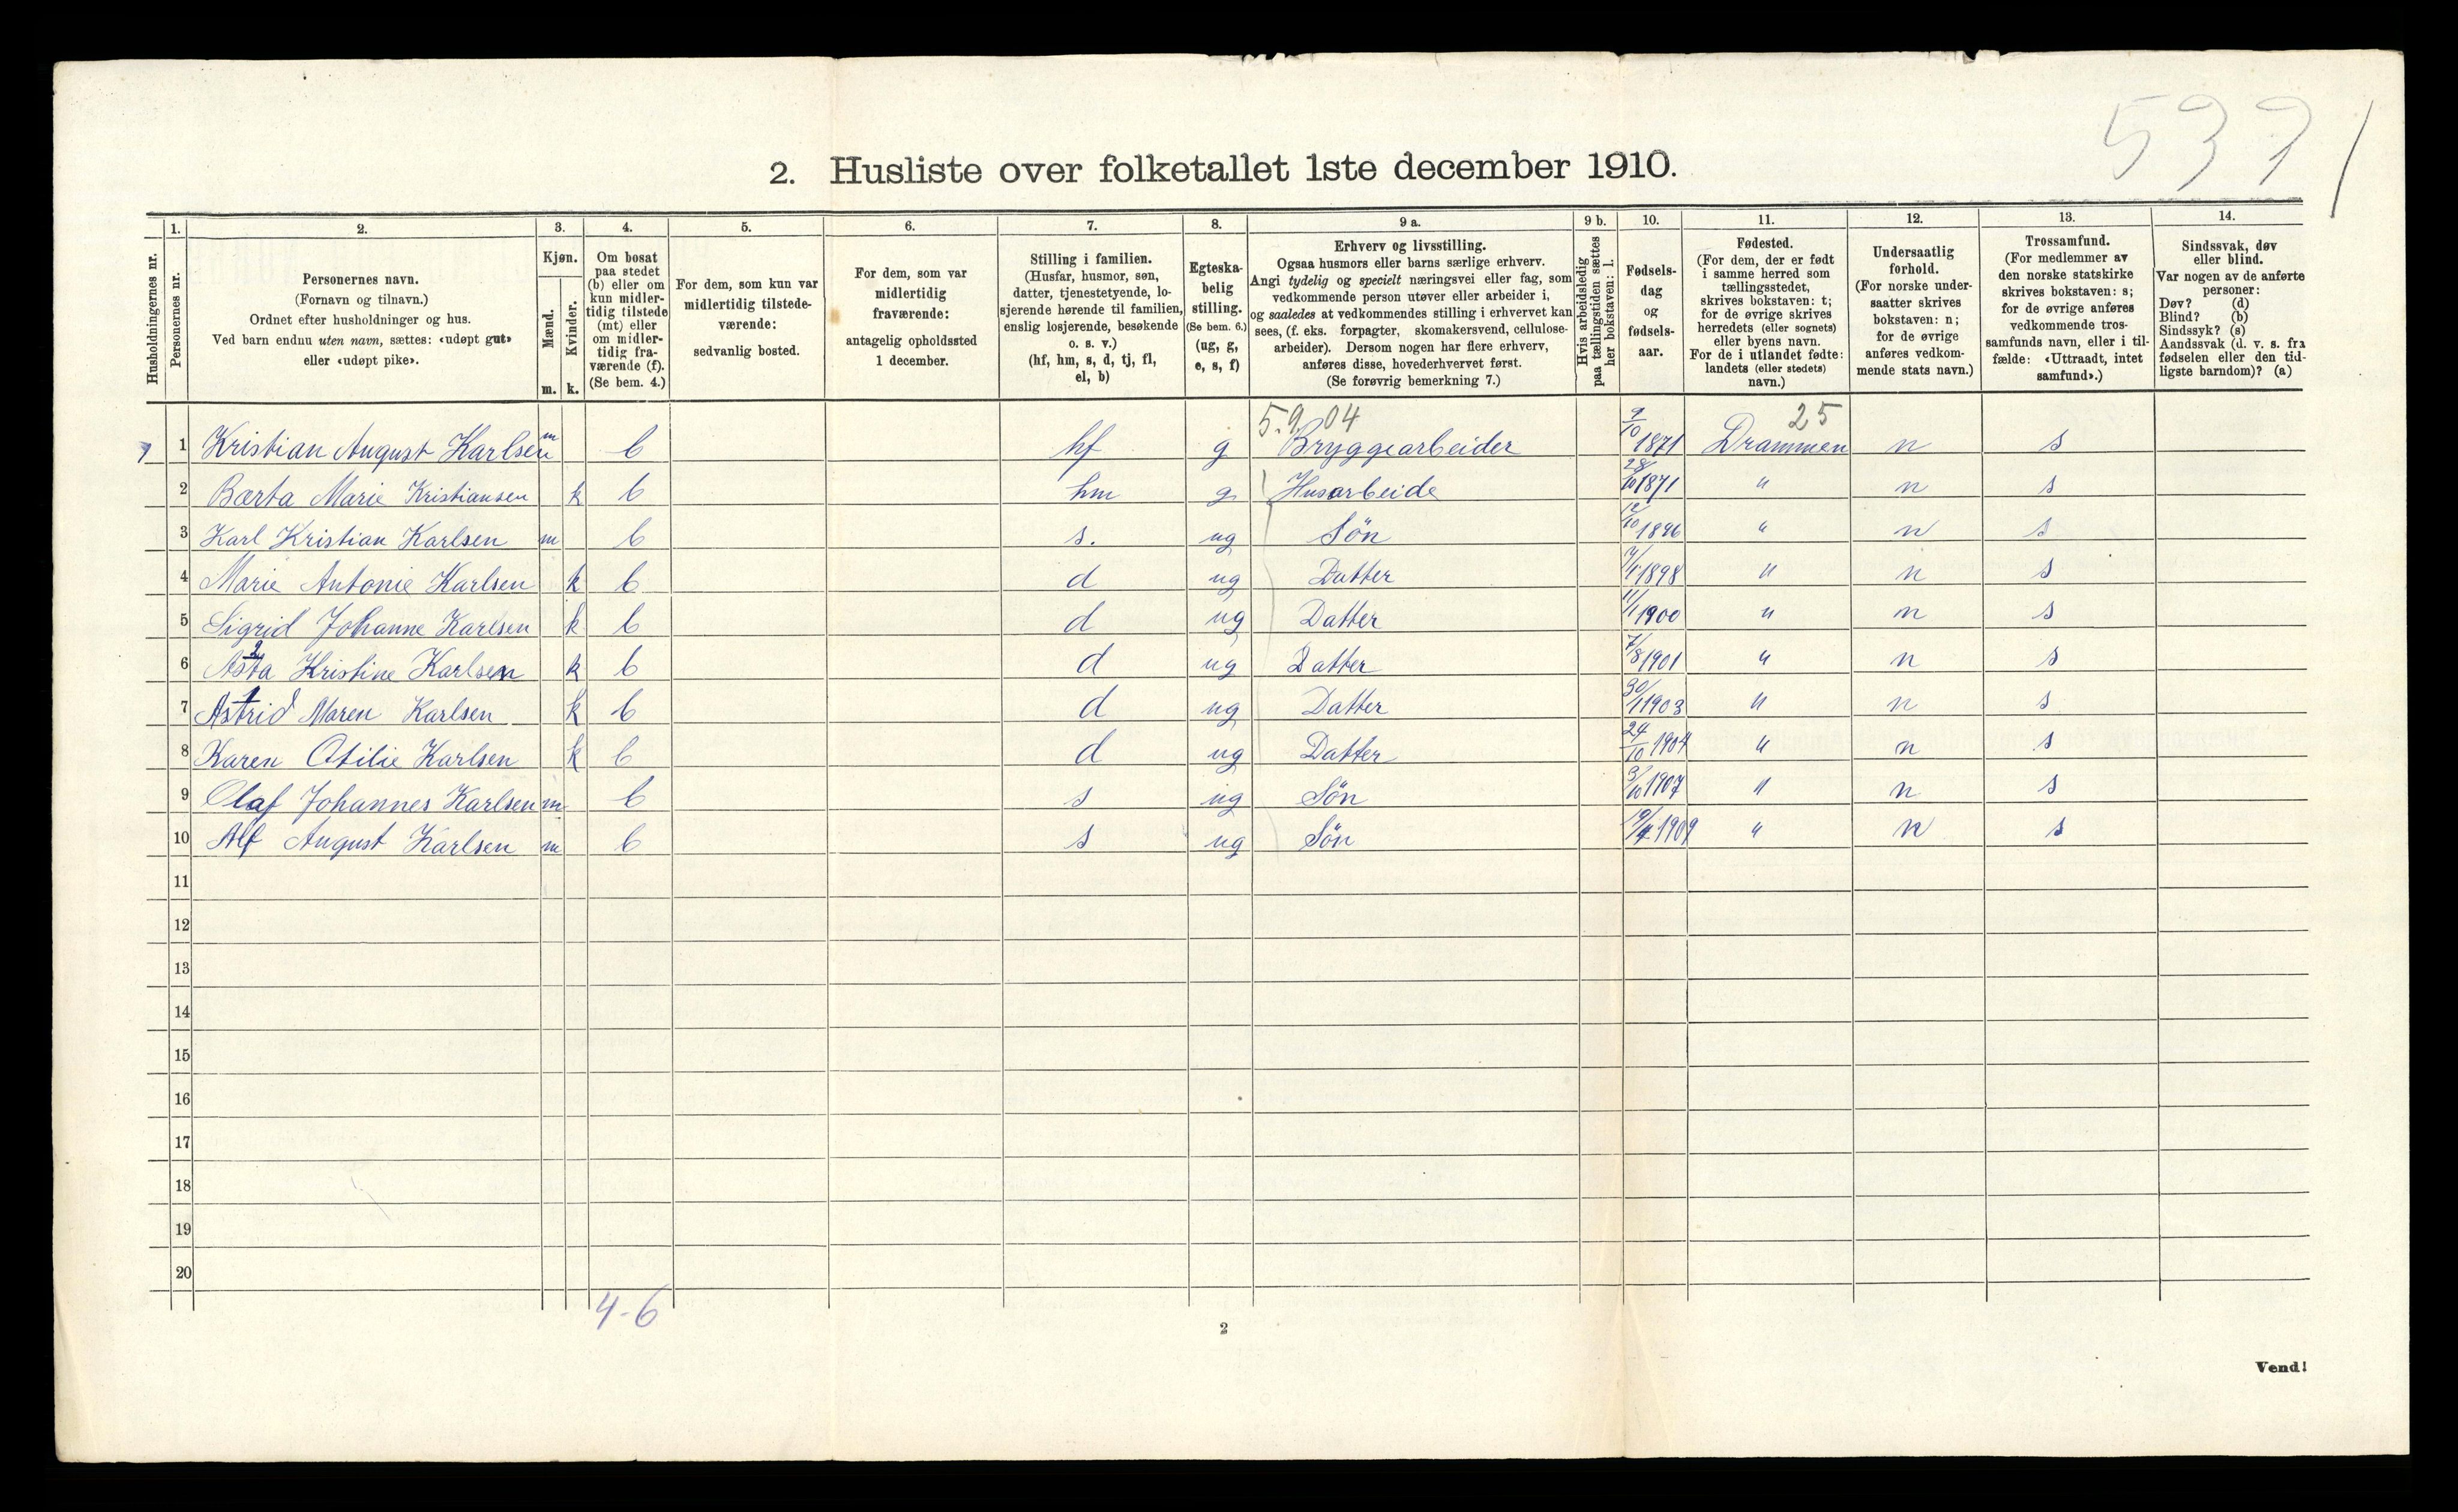 537 /
2. Husliste over folketallet 1ste december 1910.
Husholdningernes nr.
1. Personernes nr.
2. Personernes navn. (Fornavn og tilnavn.) Ordnet efter husholdninger og hus. Ved barn endnu uten navn, sættes: «udøpt gut» eller «udøpt pike».
3. Kjøn. Mænd. m. Kvinder. k.
4. Om bosat paa stedet (b) eller om kun midlertidig tilstede (mt) eller om midlertidig fraværende (f). (Se bem. 4.)
5. For dem, som kun var midlertidig tilstedeværende: sedvanlig bosted.
6. For dem, som var midlertidig fraværende: antagelig opholdssted 1 december.
7. Stilling i familien. (Husfar, husmor, søn, datter, tjenestetyende, losjerende hørende til familien, enslig losjerende, besøkende o. s. v.) (hf, hm, s, d, tj, fl, el, b)
8. Egteskabelig stilling. (Se bem. 6.) (ug, g, e, s, f)
9 a. Erhverv og livsstilling. Ogsaa husmors eller barns særlige erhverv. Angi tydelig og specielt næringsvei eller fag, som vedkommende person utøver eller arbeider i, og saaledes at vedkommendes stilling i erhvervet kan sees, (f. eks. forpagter, skomakersvend, cellulosearbeider). Dersom nogen har flere erhverv, anføres disse, hovederhvervet først. (Se forøvrig bemerkning 7.)
9 b. Hvis arbeidsledig paa tællingstiden sættes her bokstaven: l.
10. Fødselsdag og fødselsaar.
11. Fødested. (For dem, der er født i samme herred som tællingsstedet, skrives bokstaven: t; for de øvrige skrives herredets (eller sognets) eller byens navn. For de i utlandet fødte: landets (eller stedets) navn.)
12. Undersaatlig forhold. (For norske undersaatter skrives bokstaven: n; for de øvrige anføres vedkommende stats navn.)
13. Trossamfund. (For medlemmer av den norske statskirke skrives bokstaven: s; for de øvrige anføres vedkommende trossamfunds navn, eller i tilfælde: «Uttraadt, intet samfund».)
14. Sindssvak, døv eller blind. Var nogen av de anførte personer: Døv? (d) Blind? (b) Sindssyk? (s) Aandssvak (d. v. s. fra fødselen eller den tidligste barndom)? (a)
5.9.04 25
1 1 Kristian August Karlsen m b hf g Bryggearbeider 9/10 1871 Drammen n s
2 Bærta Marie Kristiansen k b hm g Husarbeide 28/10 1871 " n s
3 Karl Kristian Karlsen m b s. ug Søn 12/10 1896 " n s
4 Marie Antonie Karlsen k b d ug Datter 1898 " n s
5 Sigrid Johanne Karlsen k b d ug Datter 11/1 1900 " n s
2
6 Asta Kristine Karlsen k b d ug Datter 7/8 1901 " n s
1
7 Astrid Maren Karlsen k b d ug Datter 30/1 1903 " n s
8 Karen Otilie Karlsen k b d ug Datter 24/10 1904 " n s
9 Olaf Johannes Karlsen m b s ug Søn 3/10 1907 " n s
10 Alf August Karlsen m b s ug Søn 19/4 1909 " n s
11
12
13
14
15
16
17
18
19
20
4-6
2
Vend!